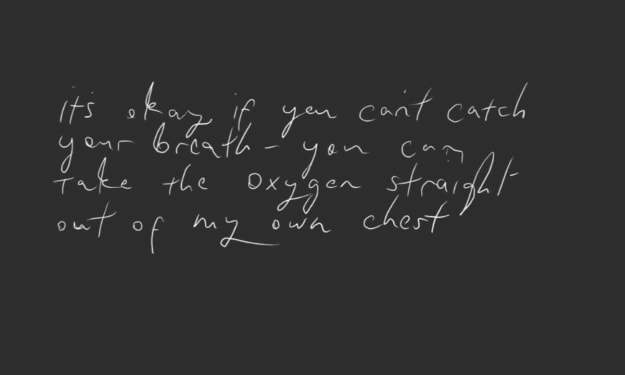 it's okay if you can't catch
your breath - you can
take the oxygen straight
out of my own chest